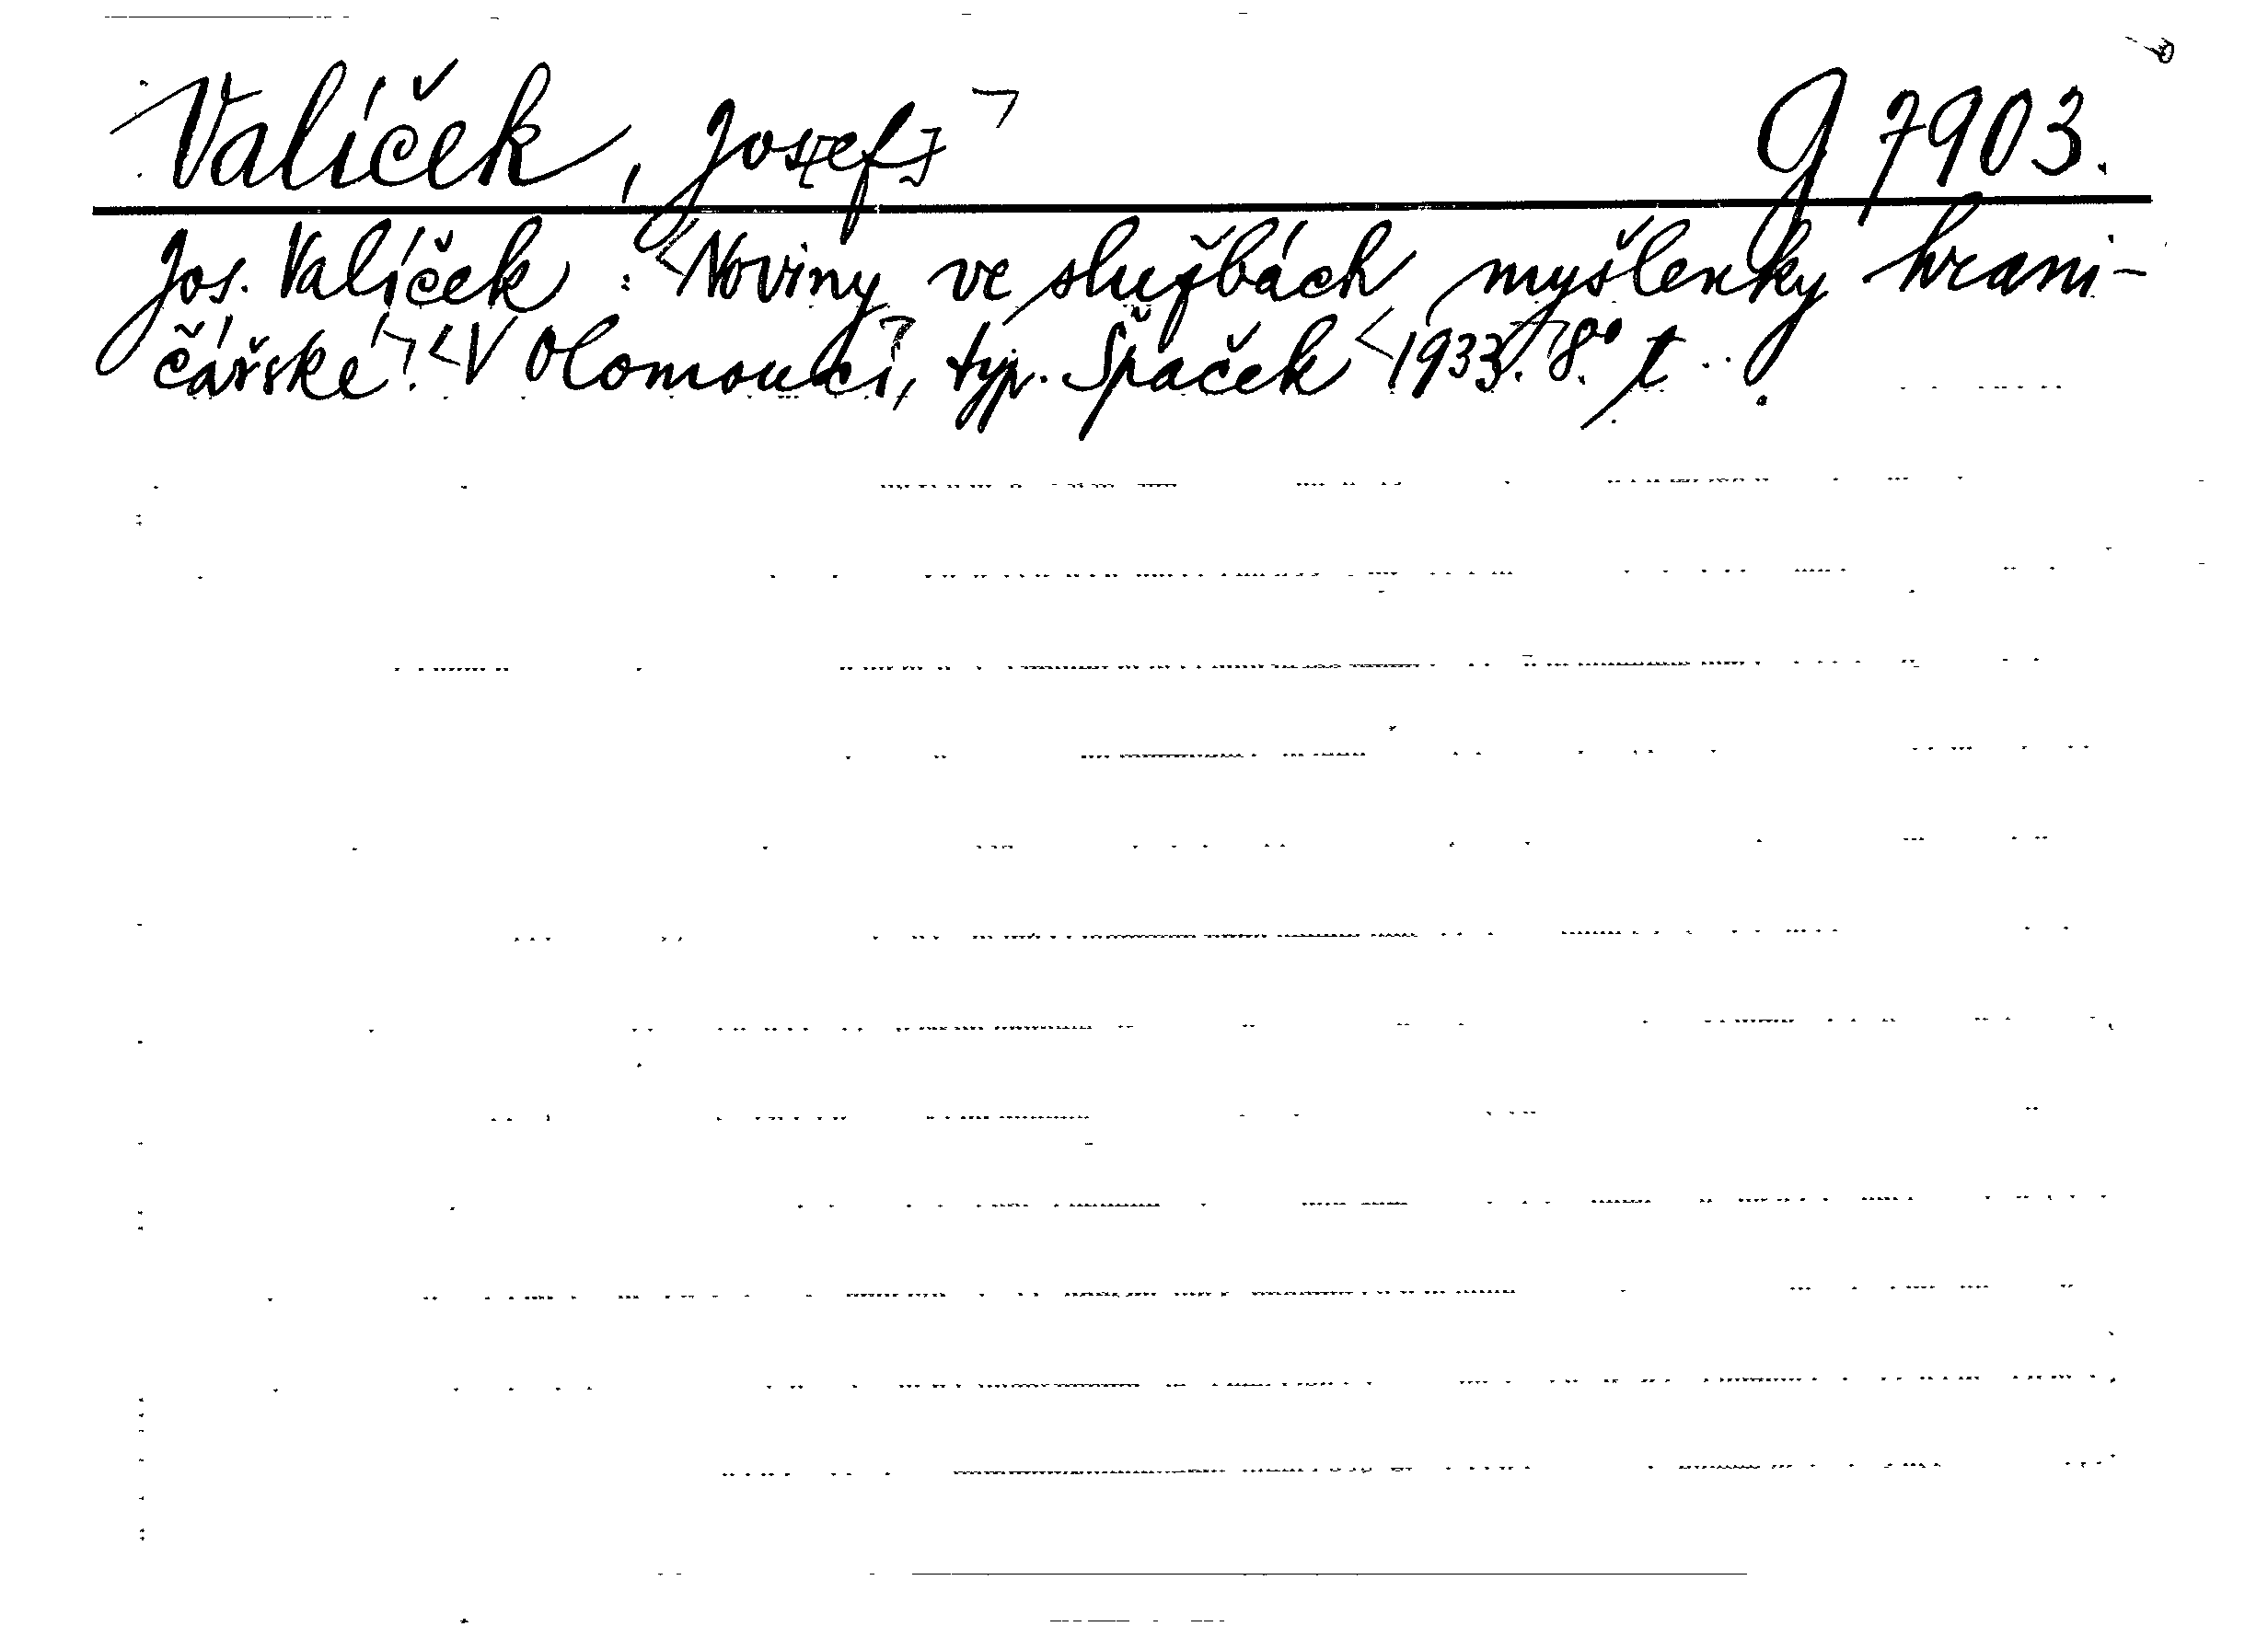 Valíček, Jos[ef] G 7903.
Jos. Valíček: Noviny ve službách myšlenky hrani-
čářské. V Olomouci, typ. Špaček 1933. 8° t.